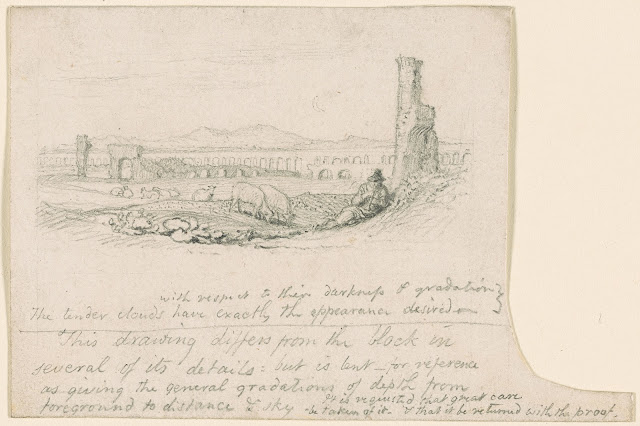 with respect to their darkness & gradation }
The under clouds have exactly the appearance desired
This drawing differs from the block in
several of its details: but is lent – for reference
as giving the general gradations of depth from
foreground to distance & sky
It is requested that great care
be taken of it. & that it be returned with the proof.